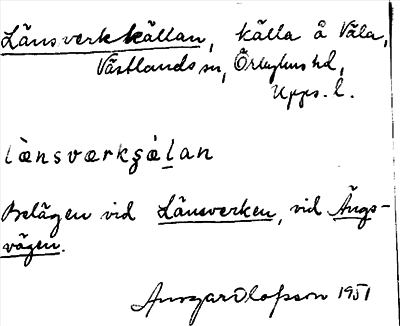 Länsverkkällan, källa å Väla,
Västlands sn, Örbyhus hd,
Upps. l.
lænsværkʂælan
Belägen vid Länsverken, vid Ängs-
vägen.
Ansgar Olofsson 1951